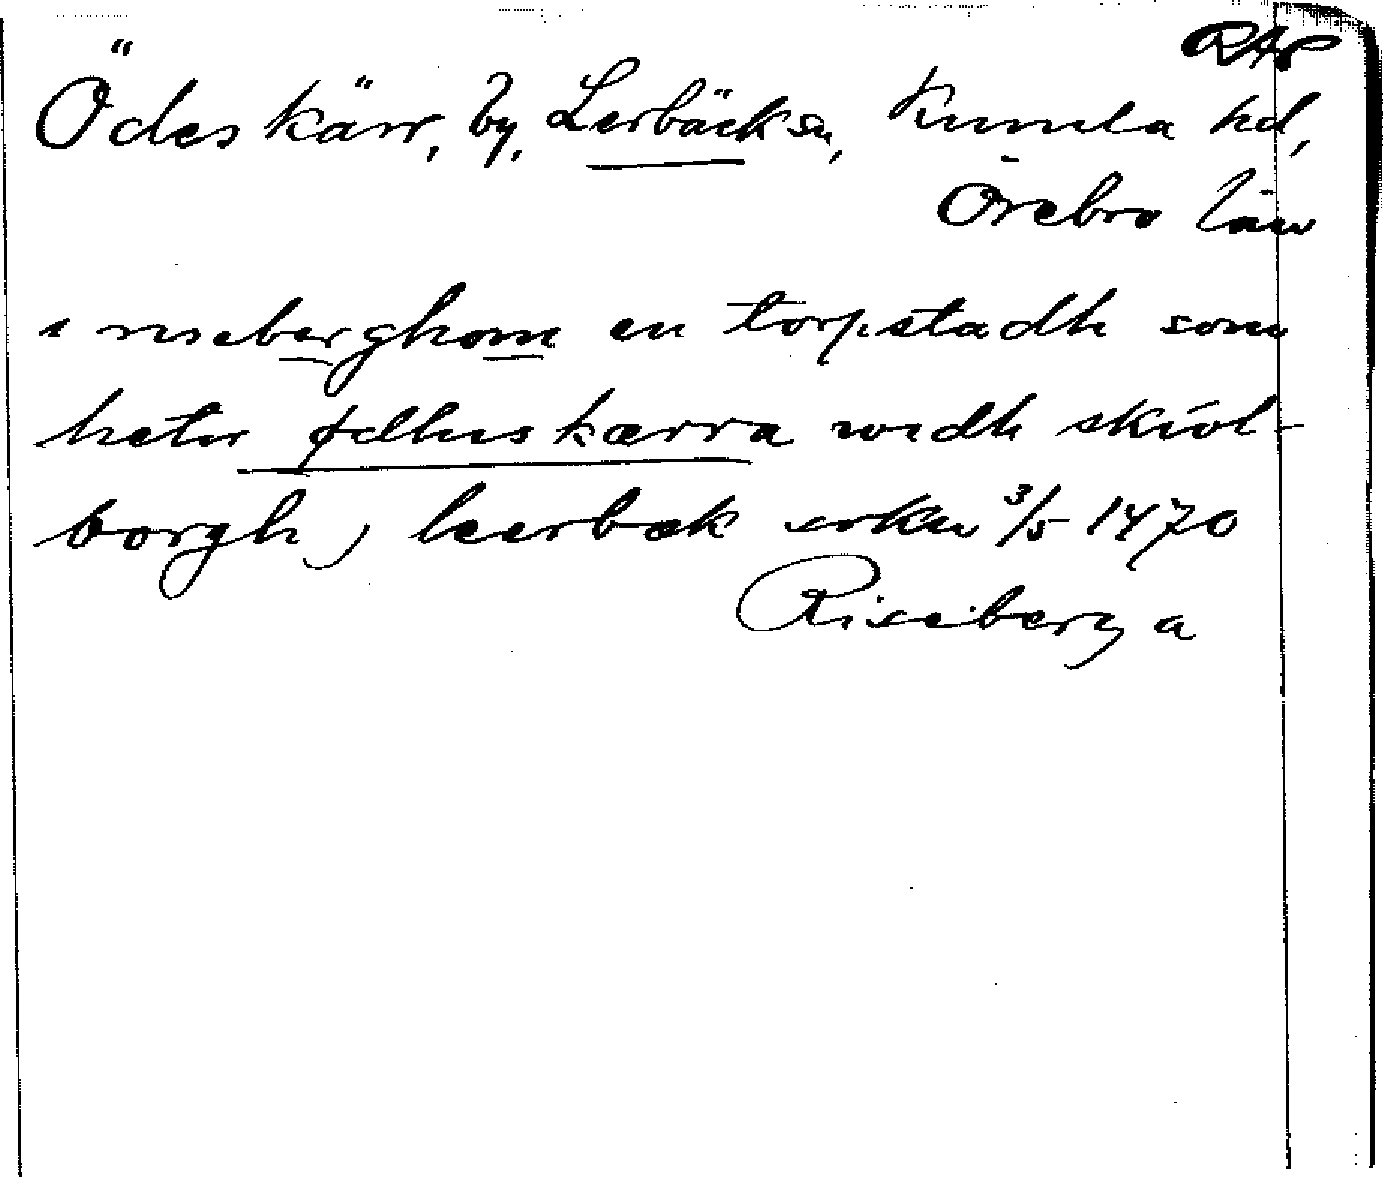 RAP
Ödeskärr, by, Lerbäck sn, Kumla hd,
Örebro län
i riseberghom en torpstadh som
heter ødhuskærra widh skiol-
borgh, leerbæk sokn 3/5 1470
Riseberga